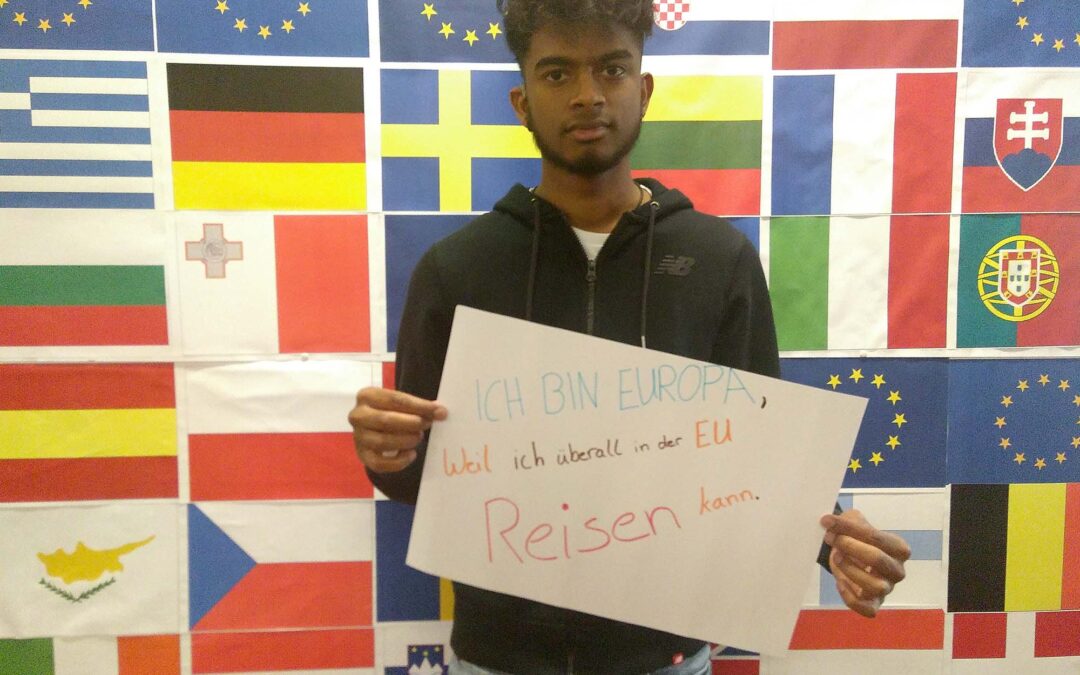 ICH BIN EUROPA,
Weil ich überall in der EU
Reisen kann.